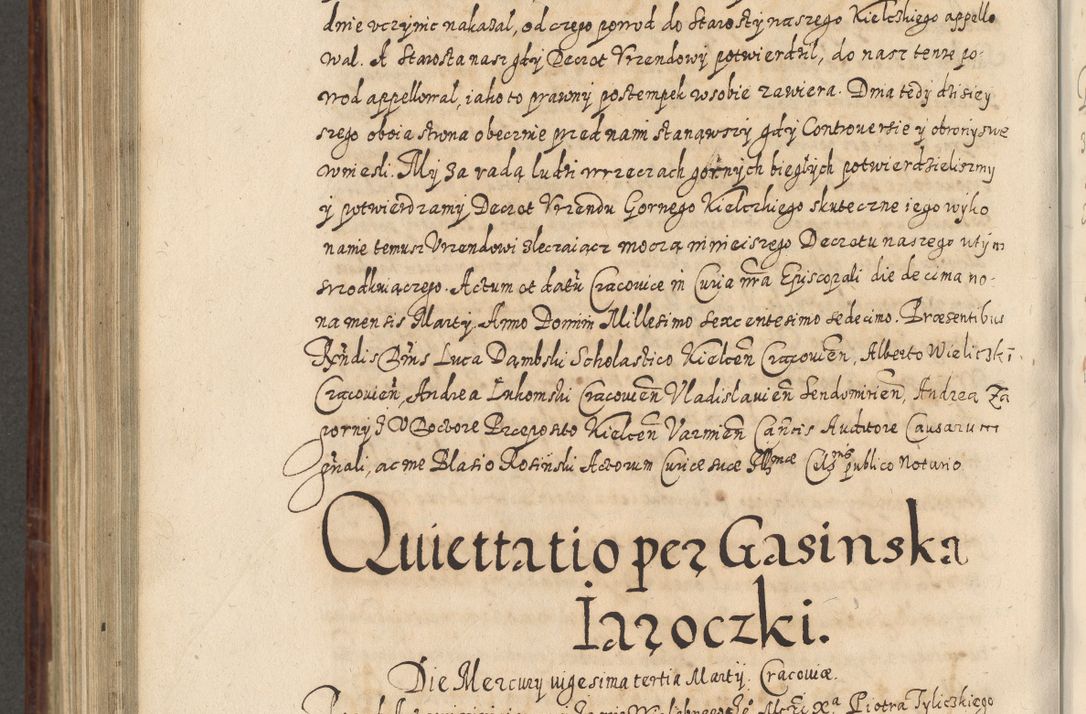 dnie uczynic nakazał, od czego powod do Starosty naszego Kielczkiego appello
wal. A Starosta nasz gdy Decret Vrzendowy potwierdził, do nasz tenze po-
wod appellował, iako to prawny postempek w sobie zawiera. Dnia tedy dzisiey
szego oboia strona obecznie przed nami stanąwszy gdy Controuersie y obrony swe
wniesli. My za radą ludzi w rzeczach gornych biegłych potwierdzielismy
y potwierdzamy Decret Vrzendu Gornego Kielczkiego skuteczne iego wyko
nanie temusz Vrzendowi zleczaiącz moczą ninieiszego Decretu naszego w tym
srzodkuiączego. Actum et datū Cracoviæ in Curia nrā Episcopali die decima no-
na mensis Martij. Anno Domini Millesimo sexcentesimo sedecimo. Præsentibus
Rṇdis Dn̄is Luca Dąmbski Scholastico Kielceñ Cracovieñ, Alberto Wieliczki
Cracovieñ, Andrea Lukomski Cracovieñ Vladislavieñ Sendomirieñ, Andrea Za
porny J V Doctore Præposito Kielceñ Varmieñ Cañcis Auditore Causarum
gñali, ac me Blasio Rosinski Actorum Curiæ suæ Illmæ Celsnis publico Notario
Quiettatio per Gasinska
Jaroczki.
Die Mercurij vigesima tertia Martij. Cracoviæ.
Piotra Tyliczkiego